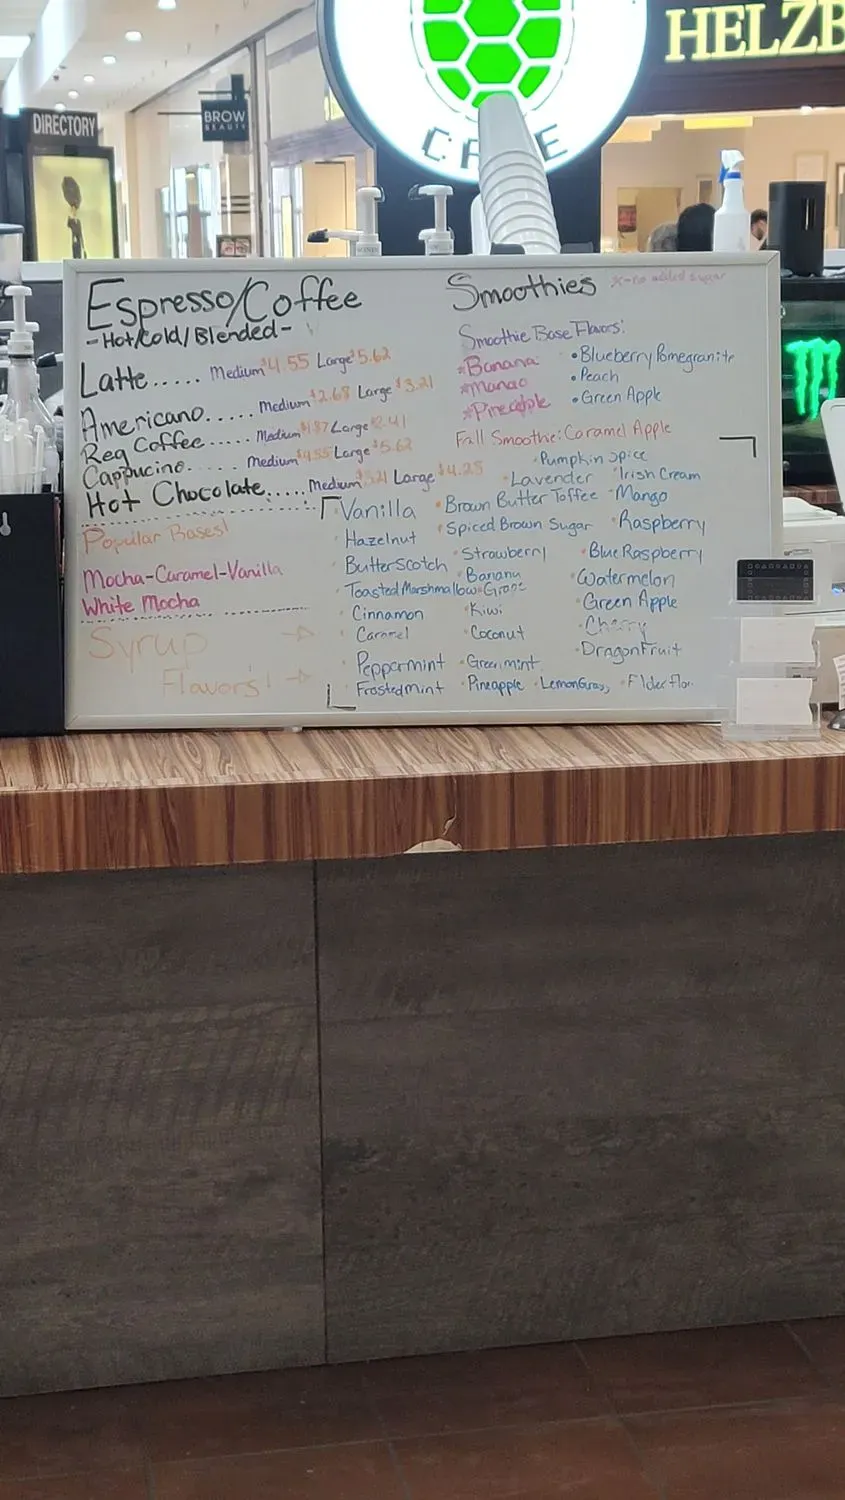 HELZB
CAFE
DIRECTORY
BROW
BEAUTY
Espresso/Coffee
-Hot/Cold/Blended-
Latte..... Medium $4.55 Large $5.62
Americano..... Medium $2.68 Large $3.21
Reg Coffee..... Medium $1.87 Large $2.41
Cappucino..... Medium $4.55 Large $5.62
Hot Chocolate..... Medium $3.21 Large $4.28
Popular Bases!
Mocha-Caramel-Vanilla
White Mocha
Syrup
Flavors!
Smoothies *-no added sugar
Smoothie Base Flavors:
*Banana •Blueberry Pomegranite
*Mango •Peach
*Pineapple •Green Apple
Fall Smoothie: Caramel Apple
•Pumpkin Spice
•Lavender •Irish Cream
•Vanilla •Brown Butter Toffee •Mango
•Hazelnut •Spiced Brown Sugar •Raspberry
•Butterscotch •Strawberry •Blue Raspberry
•Toasted Marshmallow •Banana •Watermelon
•Grape
•Cinnamon •Kiwi •Green Apple
•Caramel •Coconut •Cherry
•Peppermint •Greenmint •DragonFruit
•Frostedmint •Pineapple •LemonGrass •Elderflow